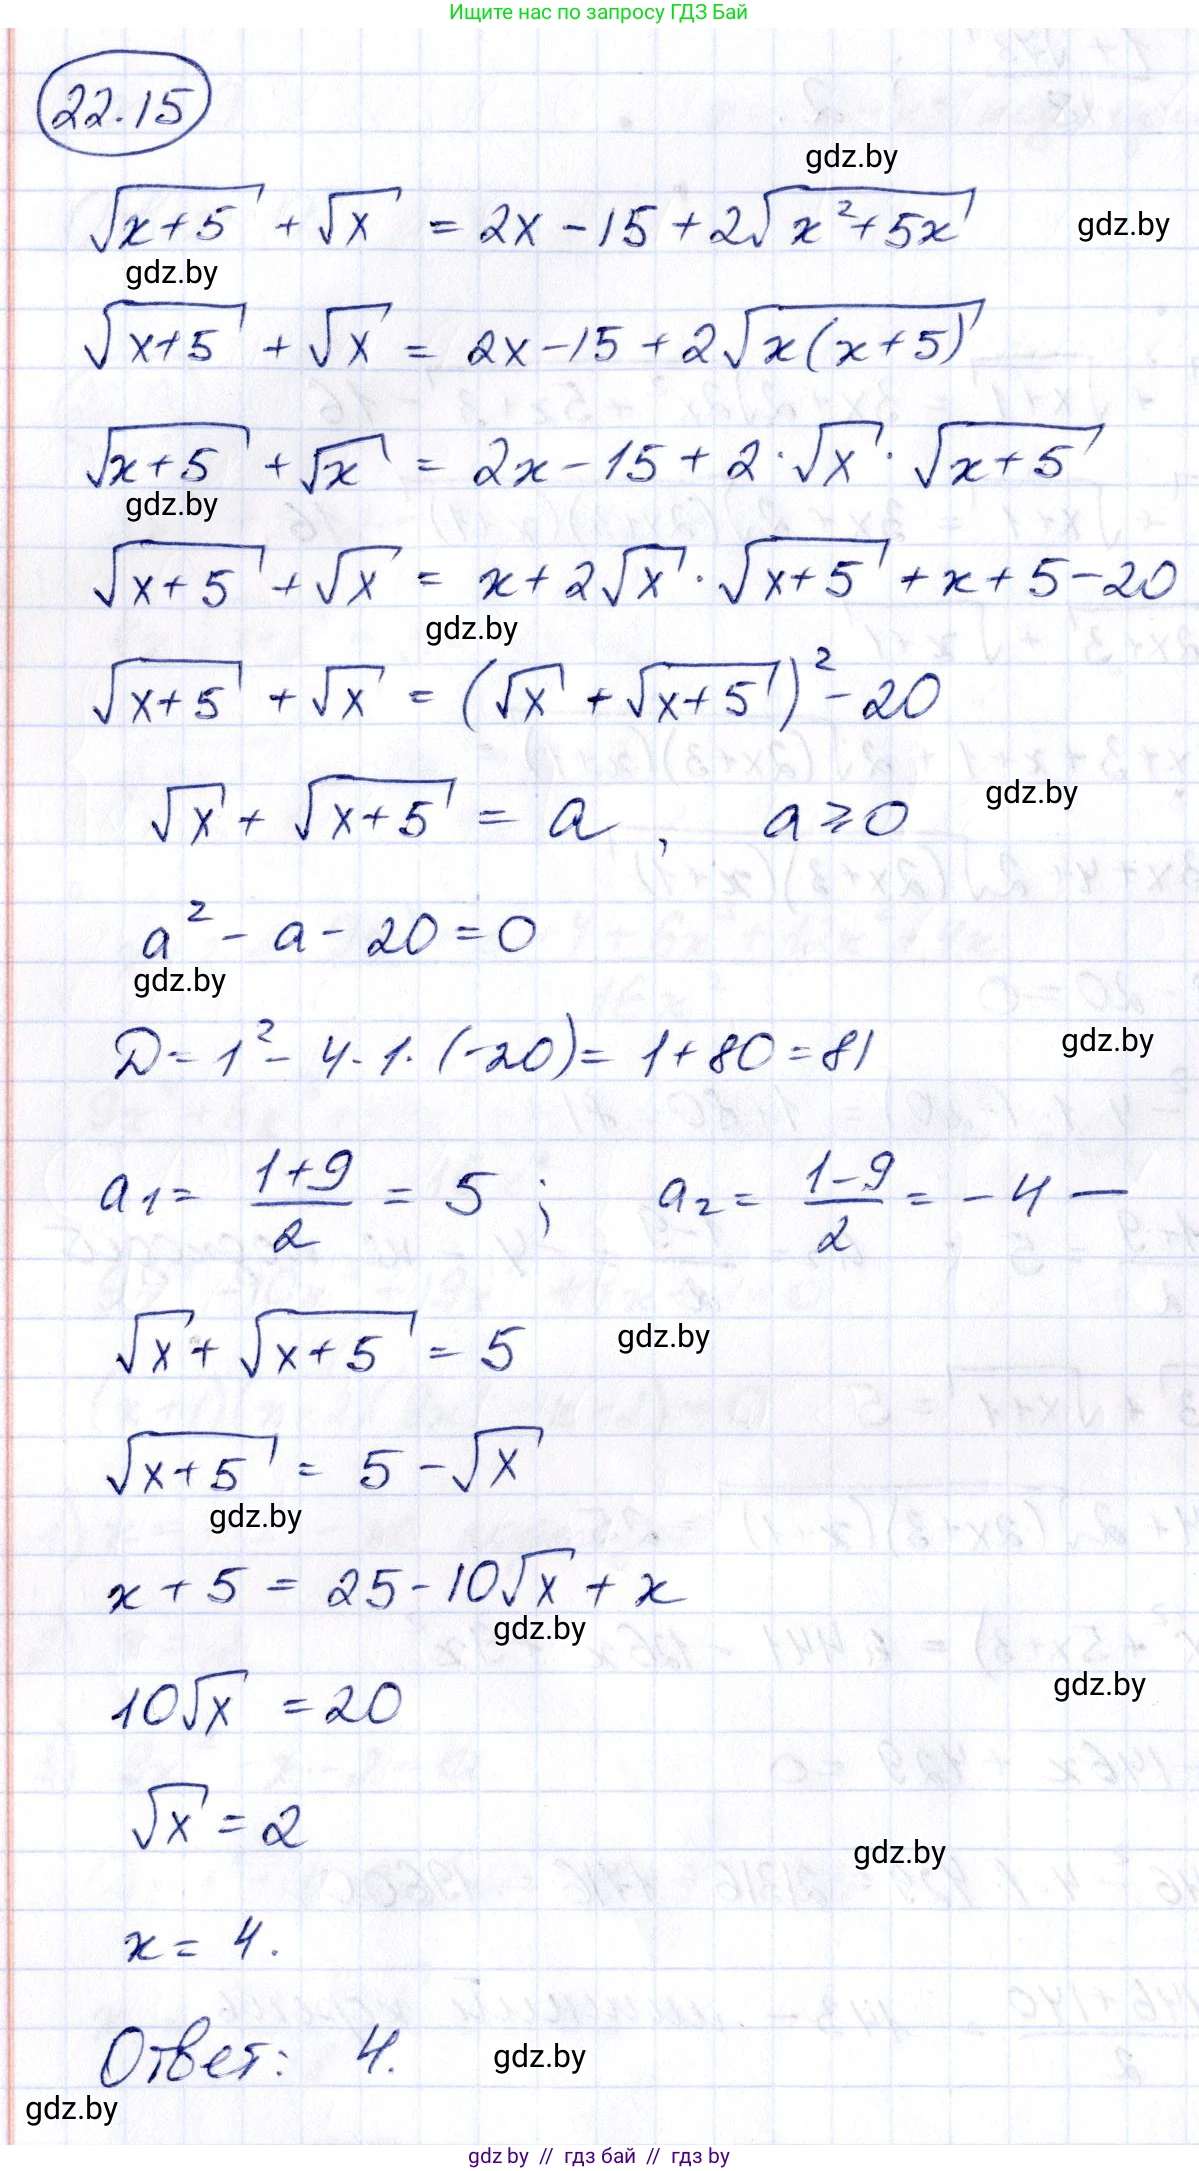 Ищите нас по запросу ГДЗ Бай
22.15
gdz.by
√(x+5) + √x = 2x - 15 + 2√(x²+5x)
gdz.by
gdz.by
√(x+5) + √x = 2x - 15 + 2√(x(x+5))
√(x+5) + √x = 2x - 15 + 2·√x · √(x+5)
gdz.by
√(x+5) + √x = x + 2√x · √(x+5) + x + 5 - 20
gdz.by
√(x+5) + √x = (√x + √(x+5))² - 20
gdz.by
√x + √(x+5) = a, a ⩾ 0
a² - a - 20 = 0
gdz.by
gdz.by
D = 1² - 4·1·(-20) = 1 + 80 = 81
a₁ = (1+9)/2 = 5 ; a₂ = (1-9)/2 = -4 —
gdz.by
√x + √(x+5) = 5
√(x+5) = 5 - √x
gdz.by
x + 5 = 25 - 10√x + x
gdz.by
gdz.by
10√x = 20
√x = 2
gdz.by
x = 4.
Ответ: 4.
gdz.by
gdz.by
gdz by // гдз бай // гдз by